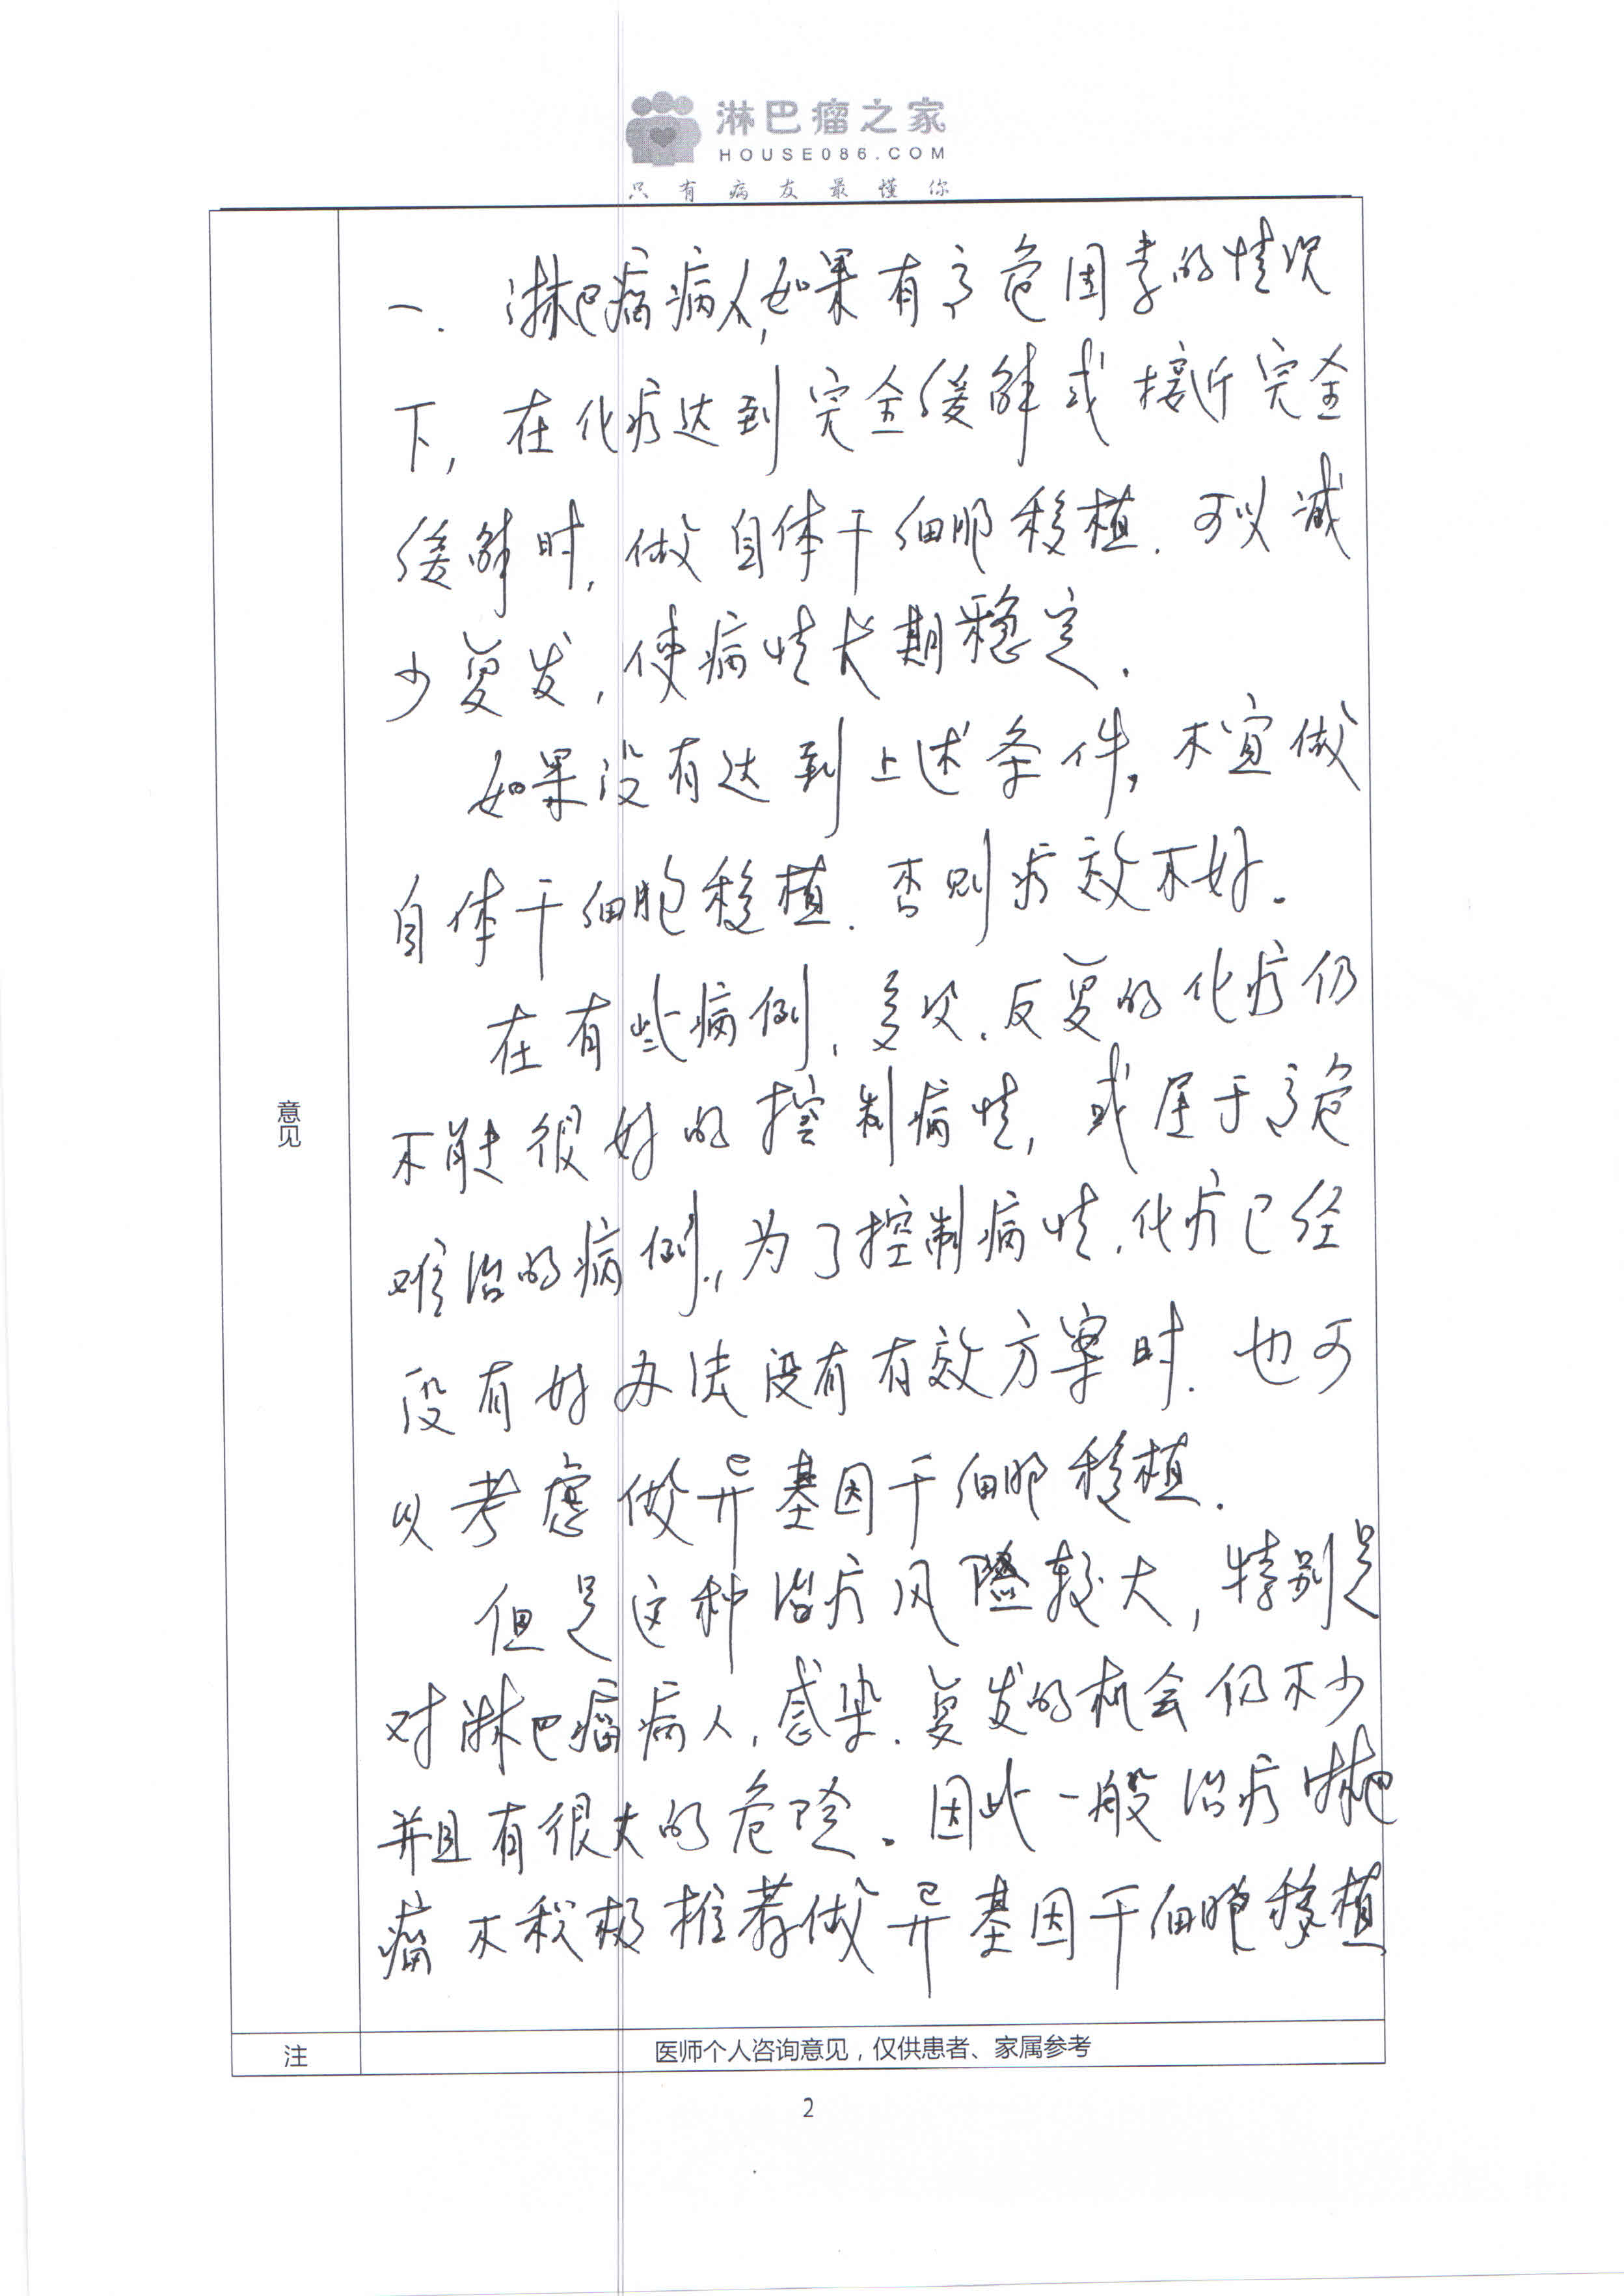 淋巴瘤之家
HOUSE086.COM
只有病友最懂你
一. 淋巴瘤病人,如果有高危因素的情况
下, 在化疗达到完全缓解或接近完全
缓解时, 做自体干细胞移植. 可以减
少复发, 使病情长期稳定.
如果没有达到上述条件, 不宜做
自体干细胞移植. 否则疗效不好.
在有些病例, 多次. 反复的化疗仍
不能很好的控制病情, 或属于高危
难治的病例, 为了控制病情, 化疗已经
没有好办法没有有效方案时. 也可
以考虑做异基因干细胞移植.
但是这种治疗风险较大, 特别是
对淋巴瘤病人, 感染. 复发的机会仍不少
并且有很大的危险. 因此一般治疗淋巴
瘤不积极推荐做异基因干细胞移植
意见
注
医师个人咨询意见，仅供患者、家属参考
2